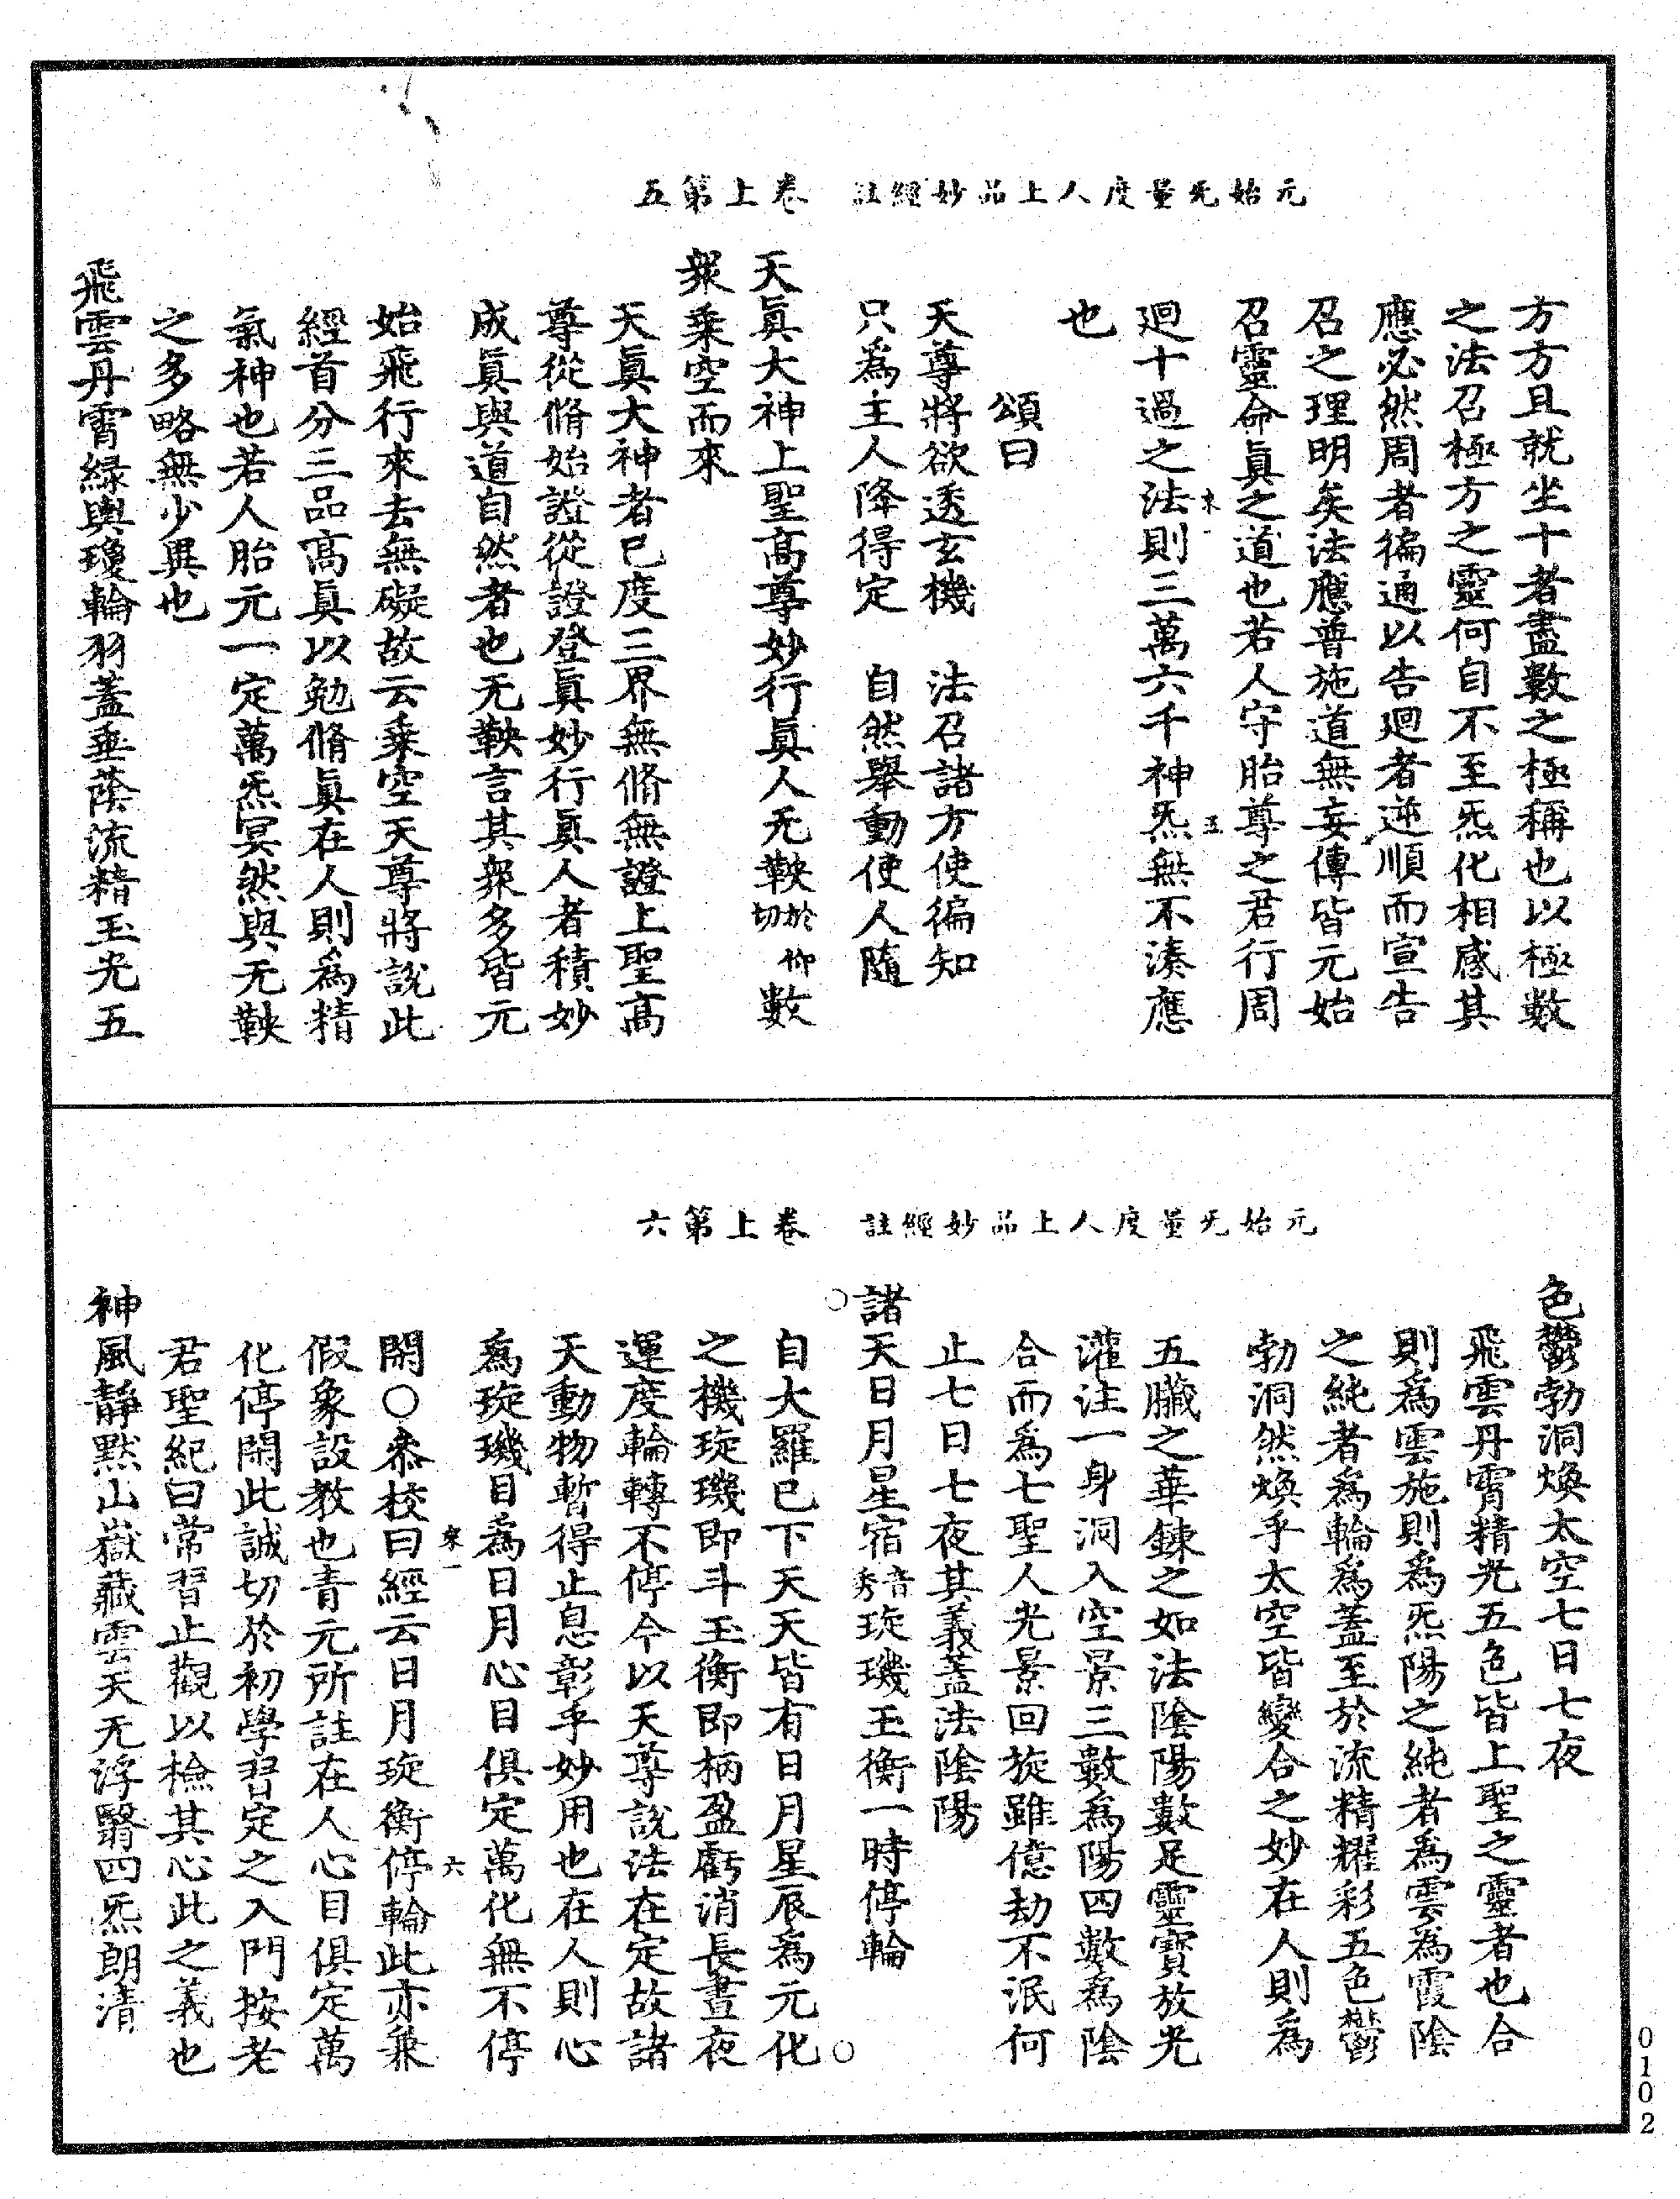 元始无量度人上品妙經註　卷上第五
方方且就坐十者盡數之極稱也以極數
之法召極方之靈何自不至炁化相感其
應必然周者徧通以告廻者逆順而宣告
召之理明矣法應普施道無妄傳皆元始
召靈命眞之道也若人守胎尊之君行周
廻十過之法則三萬六千神炁無不湊應
也
頌曰
天尊將欲透玄機　法召諸方使徧知
只爲主人降得定　自然舉動使人隨
天眞大神上聖高尊妙行眞人无鞅於仰切數
衆乗空而來
天眞大神者已度三界無脩無證上聖高
尊從脩始證從證登眞妙行眞人者積妙
成眞與道自然者也无鞅言其衆多皆元
始飛行來去無礙故云乗空天尊將說此
經首分三品高眞以勉脩眞在人則爲精
氣神也若人胎元一定萬炁冥然與无鞅
之多略無少異也
飛雲丹霄緑輿瓊輪羽蓋垂蔭流精玉光五
元始无量度人上品妙經註　卷上第六
色鬱勃洞煥太空七日七夜
飛雲丹霄精光五色皆上聖之靈者也合
則爲雲施則爲炁陽之純者爲雲爲霞陰
之純者爲輪爲蓋至於流精耀彩五色鬱
勃洞然煥乎太空皆變合之妙在人則爲
五臟之華鍊之如法陰陽數足靈寶放光
灌注一身洞入空景三數爲陽四數爲陰
合而爲七聖人光景回旋雖億劫不泯何
止七日七夜其義蓋法陰陽
諸天日月星宿音秀琁璣玉衡一時停輪
自大羅已下天天皆有日月星辰爲元化
之機琁璣即斗玉衡即柄盈虧消長晝夜
運度輪轉不停今以天尊說法在定故諸
天動物暫得止息彰乎妙用也在人則心
爲琁璣目爲日月心目俱定萬化無不停
閑○叅校曰經云日月琁衡停輪此亦兼
假象設教也青元所註在人心目俱定萬
化停閑此誠切於初學習定之入門按老
君聖紀曰常習止觀以檢其心此之義也
神風靜黙山嶽藏雲天无浮翳四炁朗清
0102